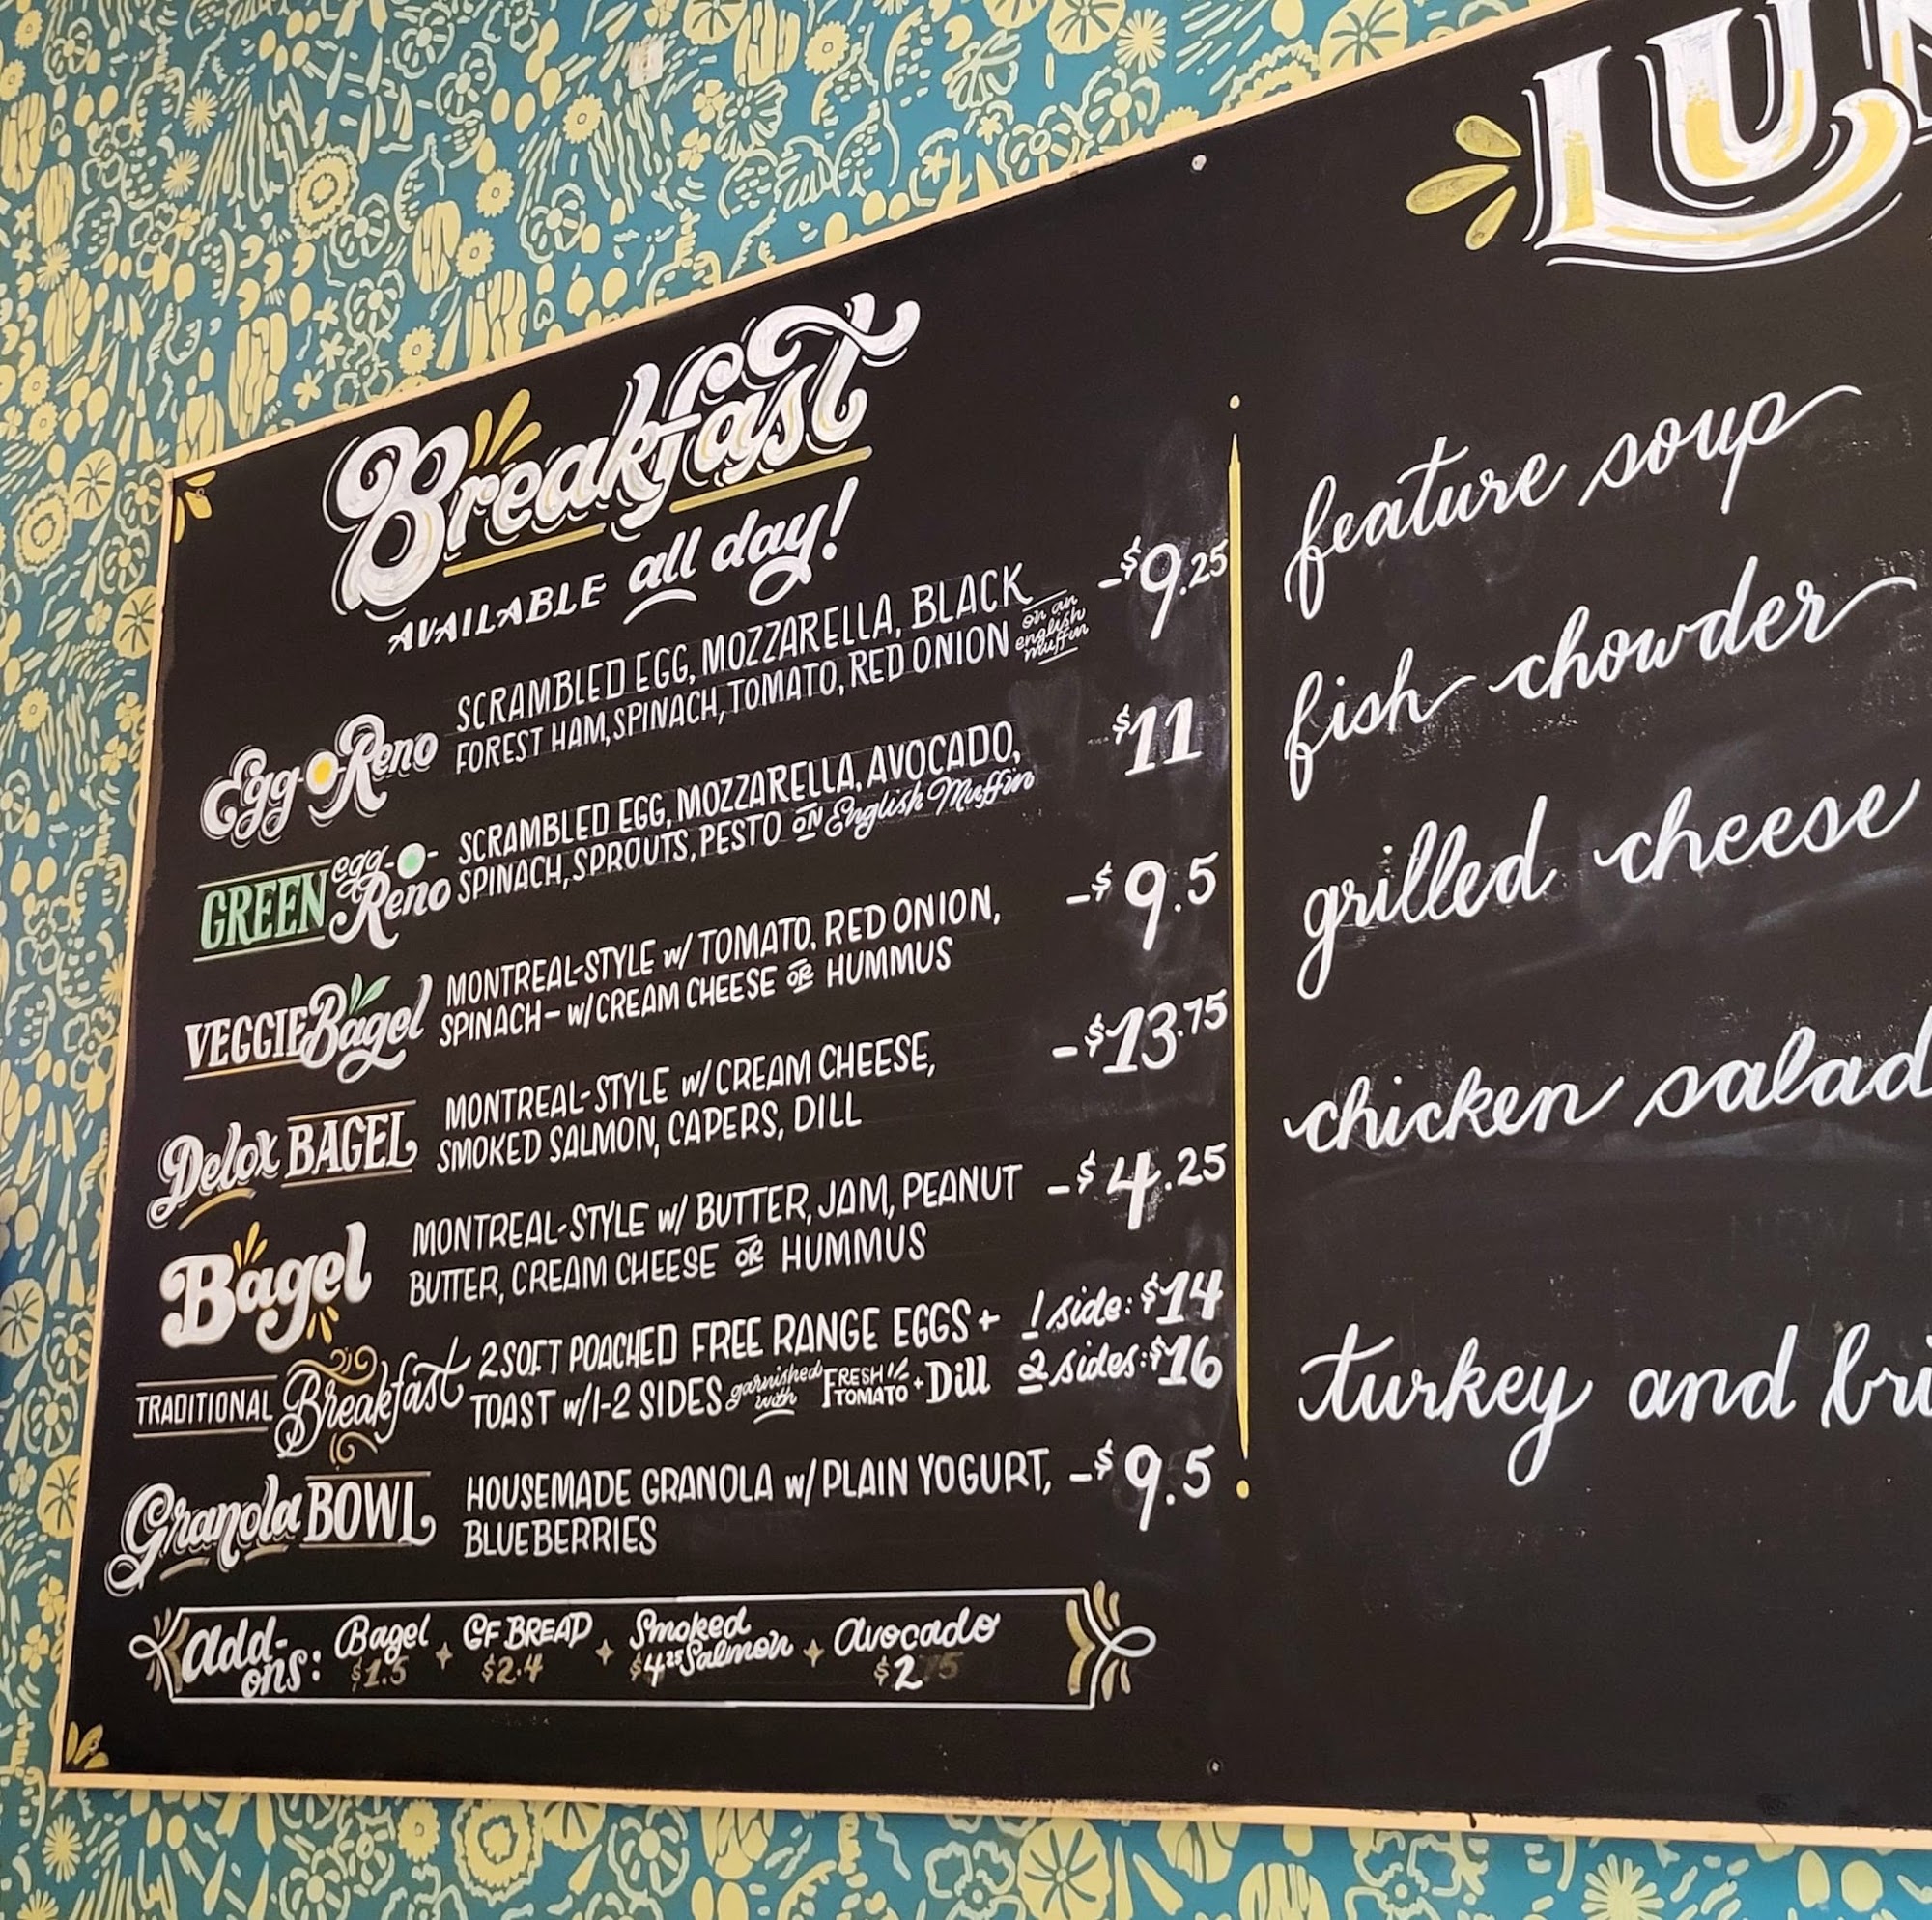 Breakfast
AVAILABLE all day!
Egg-O-Reno
SCRAMBLED EGG, MOZZARELLA, BLACK
FOREST HAM, SPINACH, TOMATO, RED ONION on an english muffin
-$9.25
GREEN egg-O-Reno
SCRAMBLED EGG, MOZZARELLA, AVOCADO,
SPINACH, SPROUTS, PESTO ON English Muffin
$11
VEGGIE Bagel
MONTREAL-STYLE w/ TOMATO, RED ONION,
SPINACH- w/ CREAM CHEESE OR HUMMUS
-$9.5
Delox BAGEL
MONTREAL-STYLE w/ CREAM CHEESE,
SMOKED SALMON, CAPERS, DILL
-$13.75
Bagel
MONTREAL-STYLE w/ BUTTER, JAM, PEANUT
BUTTER, CREAM CHEESE OR HUMMUS
-$4.25
TRADITIONAL Breakfast
2 SOFT POACHED FREE RANGE EGGS + 1 side: $14
TOAST w/1-2 SIDES garnished with FRESH TOMATO + Dill 2 sides: $16
Granola BOWL
HOUSEMADE GRANOLA w/ PLAIN YOGURT,
BLUEBERRIES
-$9.5
Add-ons:
Bagel + GF BREAD + Smoked Salmon + Avocado
$1.5 $2.4 $4.25 $2.75
LUN
feature soup
fish chowder
grilled cheese
chicken salad
turkey and bri